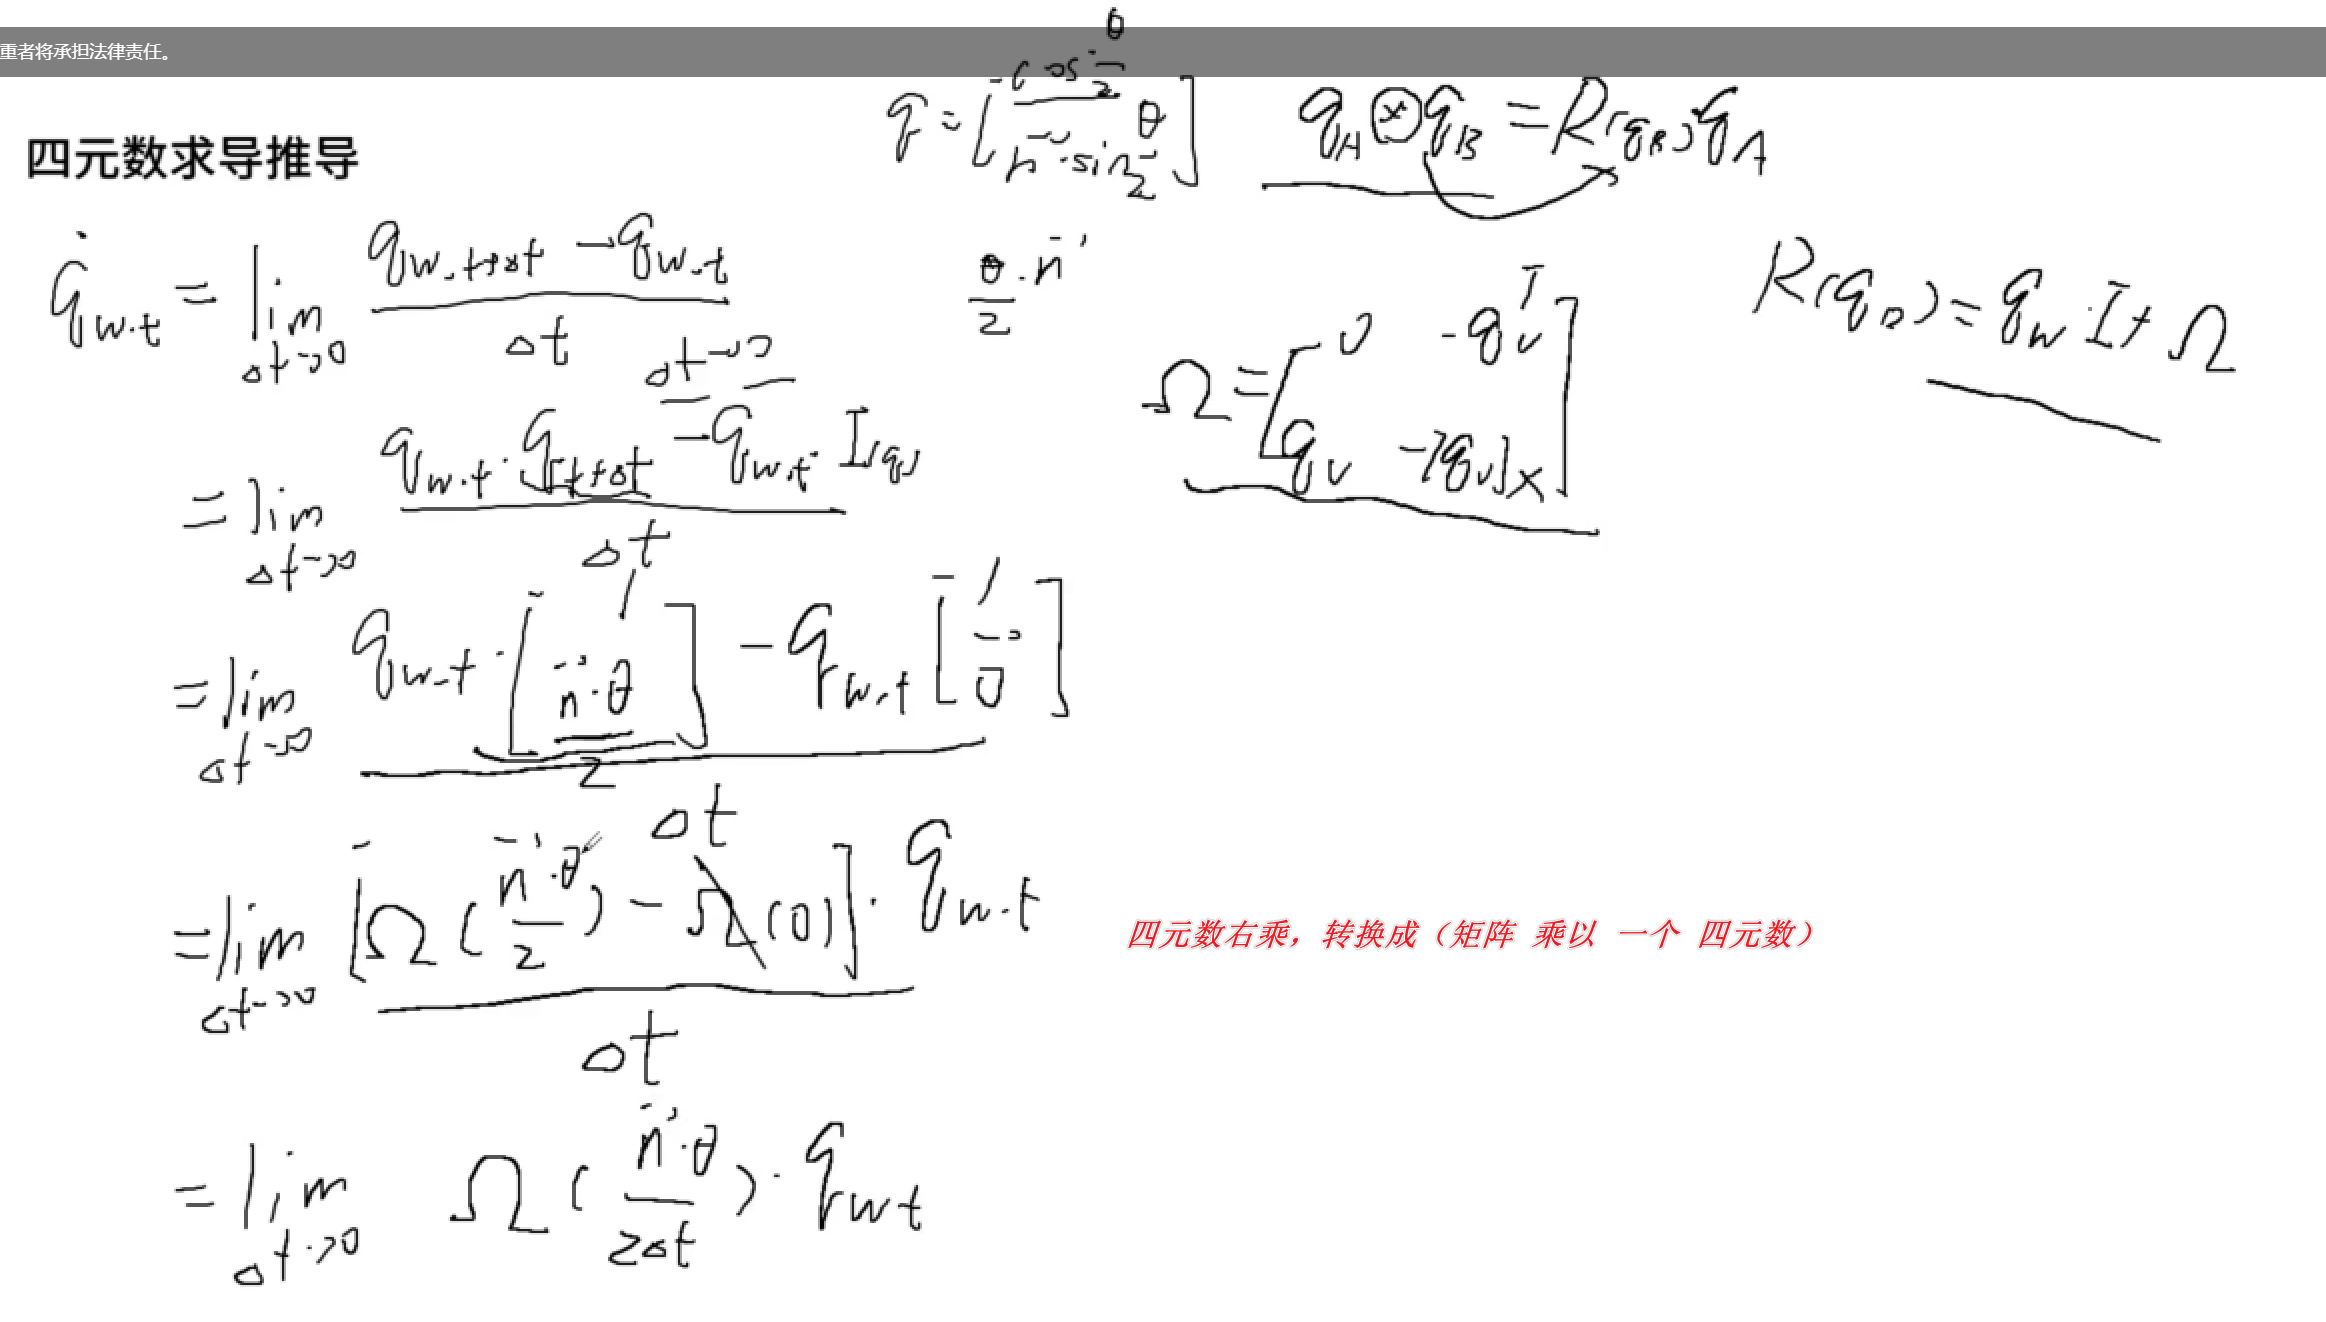 重者将承担法律责任。
四元数求导推导
q = [ cos θ/2 ; n⃗·sin θ/2 ]
q_A ⊗ q_B = R(q_B) q_A
q̇_w.t = lim Δt→0 (q_w.t+Δt − q_w.t) / Δt
θ/2 · n⃗
Ω = [ 0 −q_v^T ; q_v −[q_v]× ]
R(q_B) = q_w · I + Ω
Δt→0
= lim Δt→0 (q_w.t · q_t t+Δt − q_w.t · I(q)) / Δt
= lim Δt→0 (q_w.t · [ 1 ; n⃗·θ / 2 ] − q_w.t [ 1 ; 0⃗ ]) / Δt
= lim Δt→0 [ Ω( n⃗·θ / 2 ) − Ω(0) ] · q_w.t / Δt
四元数右乘，转换成（矩阵 乘以 一个 四元数）
= lim Δt→0 Ω( n⃗·θ / 2Δt ) · q_wt